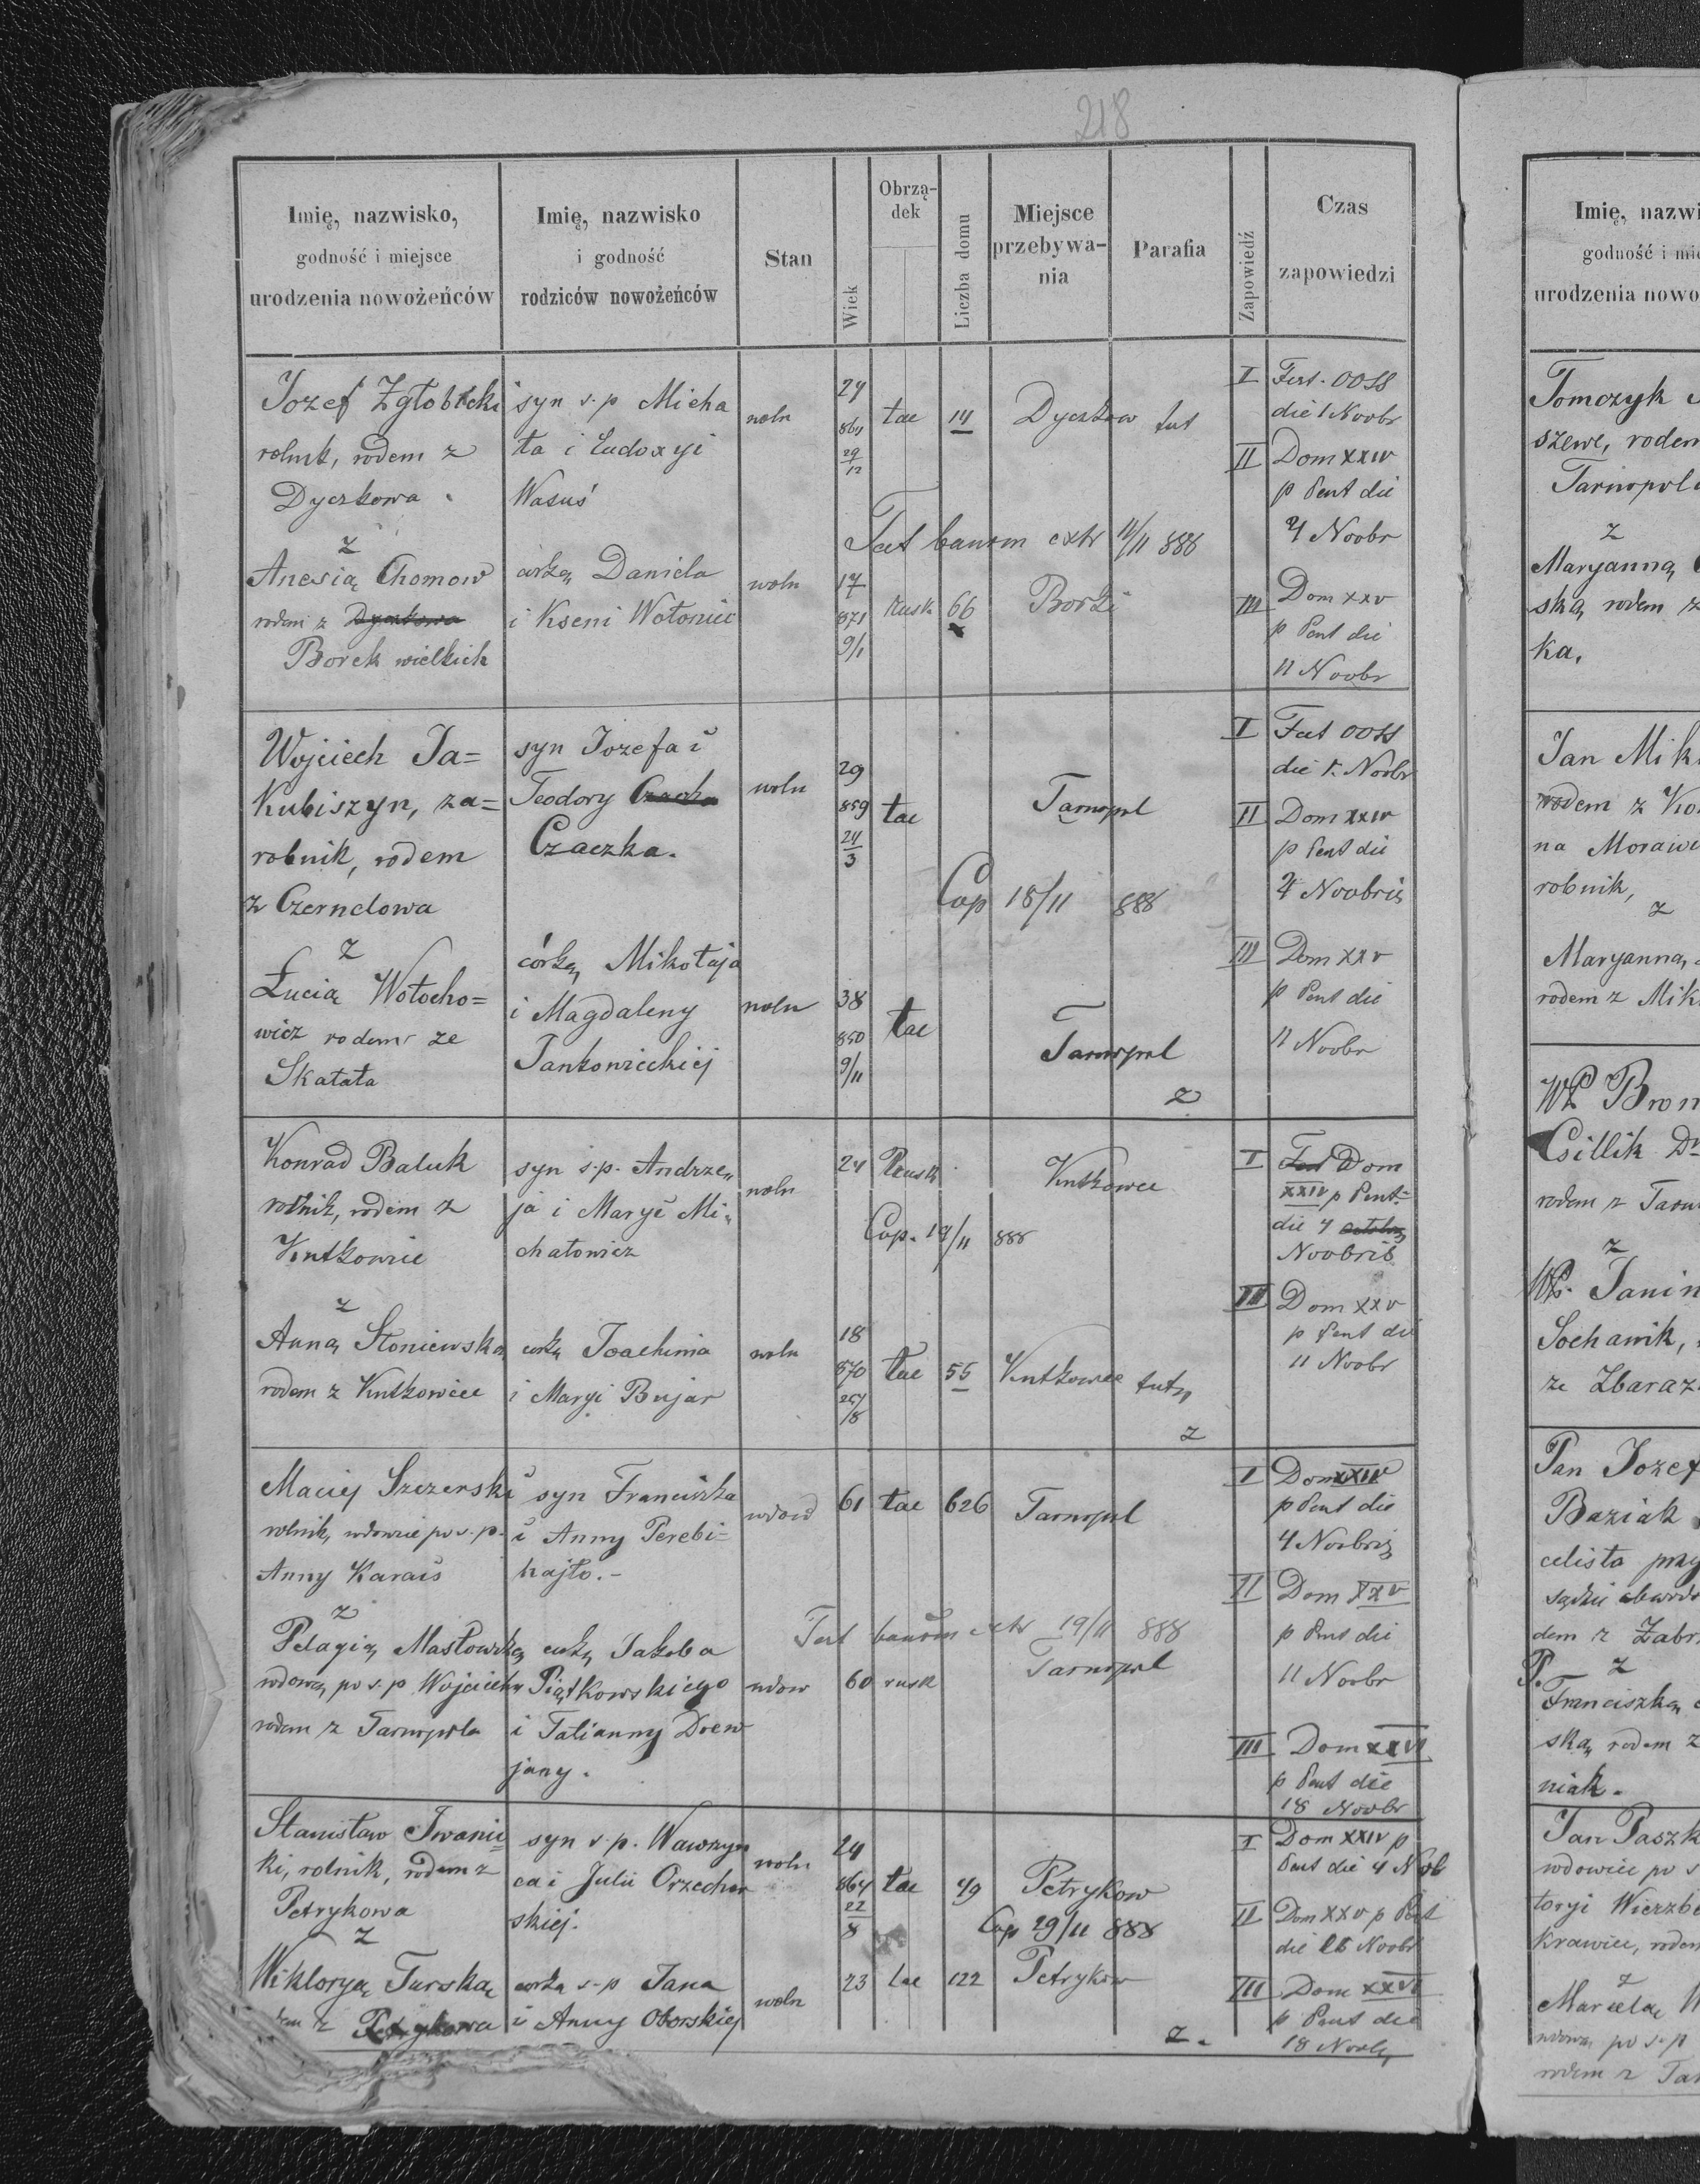 218
Imię, nazwisko,
godność i miejsce
urodzenia nowożeńców
Imię, nazwisko
i godność
rodziców nowożeńców
Stan
Wiek
Obrzą-
dek
Liczba domu
Miejsce
przebywa-
nia
Parafia
Zapowiedź
Czas
zapowiedzi
Jozef Zgłobicki
rolnik, rodem z
Dyczkowa.
z
Anesią Chomow
rodem z Dyczkowa
Borek wielkich
syn s.p Micha
ła i Eudoxyi
Wasuś
córką Daniela
i Kseni Wołoniec
woln
woln
24
864
29/12
17
871
9/1
łac
Rusk
14
66
Dyczkow
tut
Test bannm extr 11/11 888
Borki
I
Fest. OOSS
die 1 Noobr
II
Dom XXIV
p Pent die
4 Noobr
III
Dom XXV
p Pent die
11 Noobr
Wojciech Ja=
kubiszyn, za=
robnik, rodem
z Czernelowa
z
Łucią Wołocho=
wicz rodem ze
Skałata
syn Jozefa i
Teodory Czaczka
Czaczka.
córką Mikołaja
i Magdaleny
Jankowieckiej
woln
woln
29
859
24/3
38
850
9/11
łac
łac
Tarnopol
Cop 18/11 888
Tarnopol
z
I
Fest OOSS
die 1. Noobr
II
Dom XXIV
p Pent die
4 Noobris
III
Dom XXV
p Pent die
11 Noobr
Konrad Baluk
rolnik, rodem z
Kutkowie
z
Anną Słoniewską
rodem z Kutkowiec
syn s.p. Andrze„
ja i Maryi Mi„
chałowicz
córką Joachima
i Maryi Bujar
woln
woln
24
18
870
25/8
Rusk
łac
55
Kutkowce
Cop. 19/11 888
Kutkowce
tutej
z
I
Fest Dom
XXIV p Pent.
die 4 octobris
Noobris
III
Dom XXV
p Pent die
11 Noobr
Maciej Szczerski
rolnik, wdowiec po s.p.
Anny Karaś
z
Pelagią Masłowską
wdową po s.p Wojciechu
rodem z Tarnopola
syn Franciszka
i Anny Perebi=
hajło.-
córką Jakoba
Piątkowskiego
i Tatianny Drew
jany.
wdow
wdow
61
60
łac
rusk
626
Tarnopol
Test bannm extr 19/11 888
Tarnopol
I
Dom XXIV
p Pent die
4 Noobris
II
Dom XXV
p Pent die
11 Noobr
III
Dom XXVI
p Pent die
18 Noobr
Stanisław Iwanic=
ki, rolnik, rodem z
Petrykowa
z
Wiktoryą Turską
z Petrykowa
syn s.p. Wawrzyn
ca i Julii Orzechow
skiej.
corką s.p Jana
i Anny Oborskiej
woln
woln
24
864
22/8
23
łac
łac
49
122
Petrykow
Cop 29/11 888
Petrykow
z.
I
Dom XXIV p
Pent die 4 Noob
II
Dom XXV p Pent
die 11 Noobr
III
Dom XXVI
p Pent die
18 Noobr
Imię, nazwi
godność i mie
urodzenia nowo
Tomczyk
szewc, rodem
Tarnopola
z
Maryanną
ską, rodem z
ka.
Jan Mik
rodem z Ko
na Morawi
robnik,
z
Maryanną
rodem z Mik
WP Bron
Csillik Dr
rodem z Tarn
z
WP. Janin
Sochanik,
ze Zbaraż
Pan Jozef
Baziak
celista przy
sądzie obwodo
dem z Zabr
P. z
Franciszką
ską, rodem z
niak.
Jan Paszk
wdowiec po s
toryi Wierzbi
krawiec, rodem
z
Marcelą W
wdową po s.p
rodem z Tar